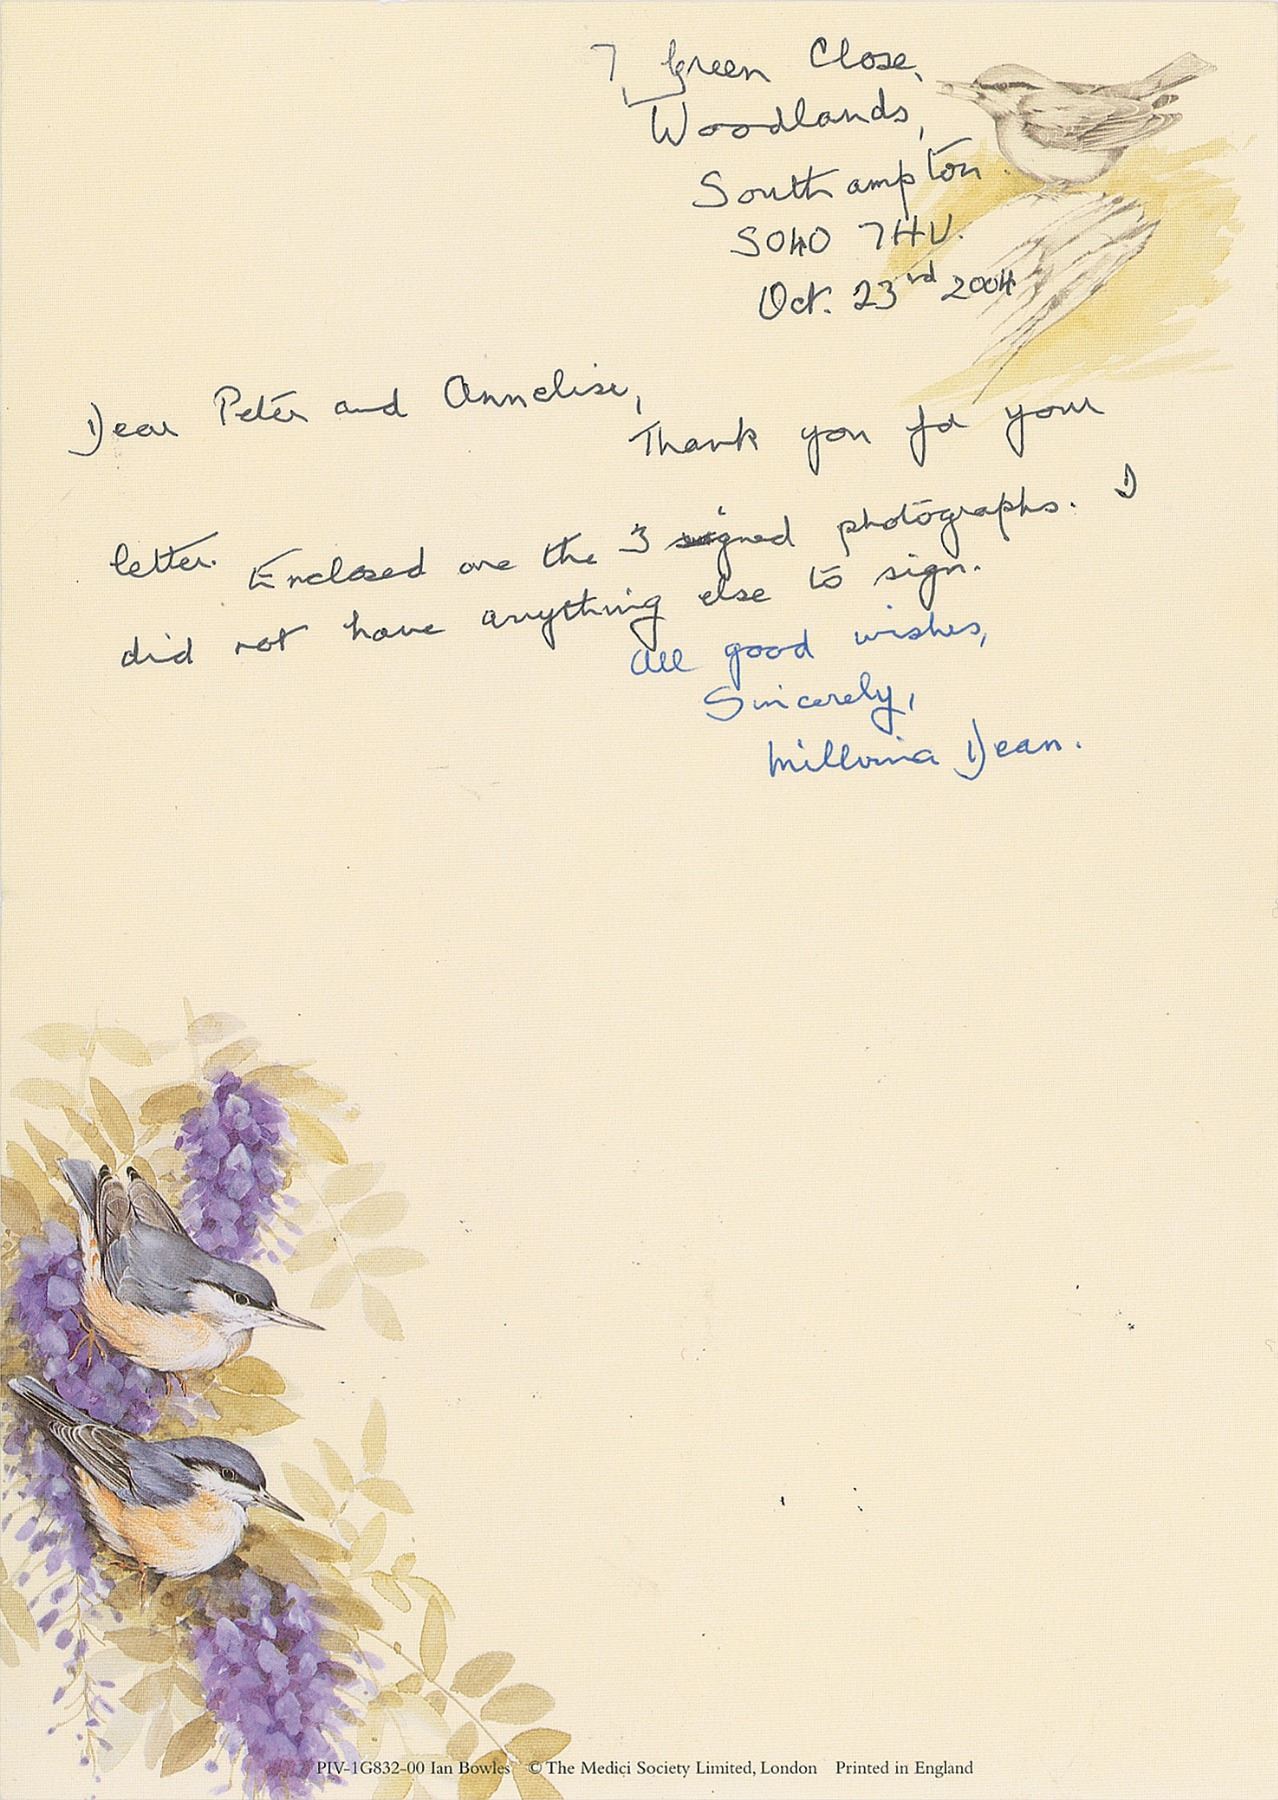 7 Green Close,
Woodlands,
Southampton.
SO40 7HU.
Oct. 23rd 2004
Dear Peter and Annelise,
Thank you for your
letter. Enclosed are the 3 signed photographs. I
did not have anything else to sign.
All good wishes,
Sincerely,
Millvina Dean.
PIV-1G832-00 Ian Bowles © The Medici Society Limited, London Printed in England